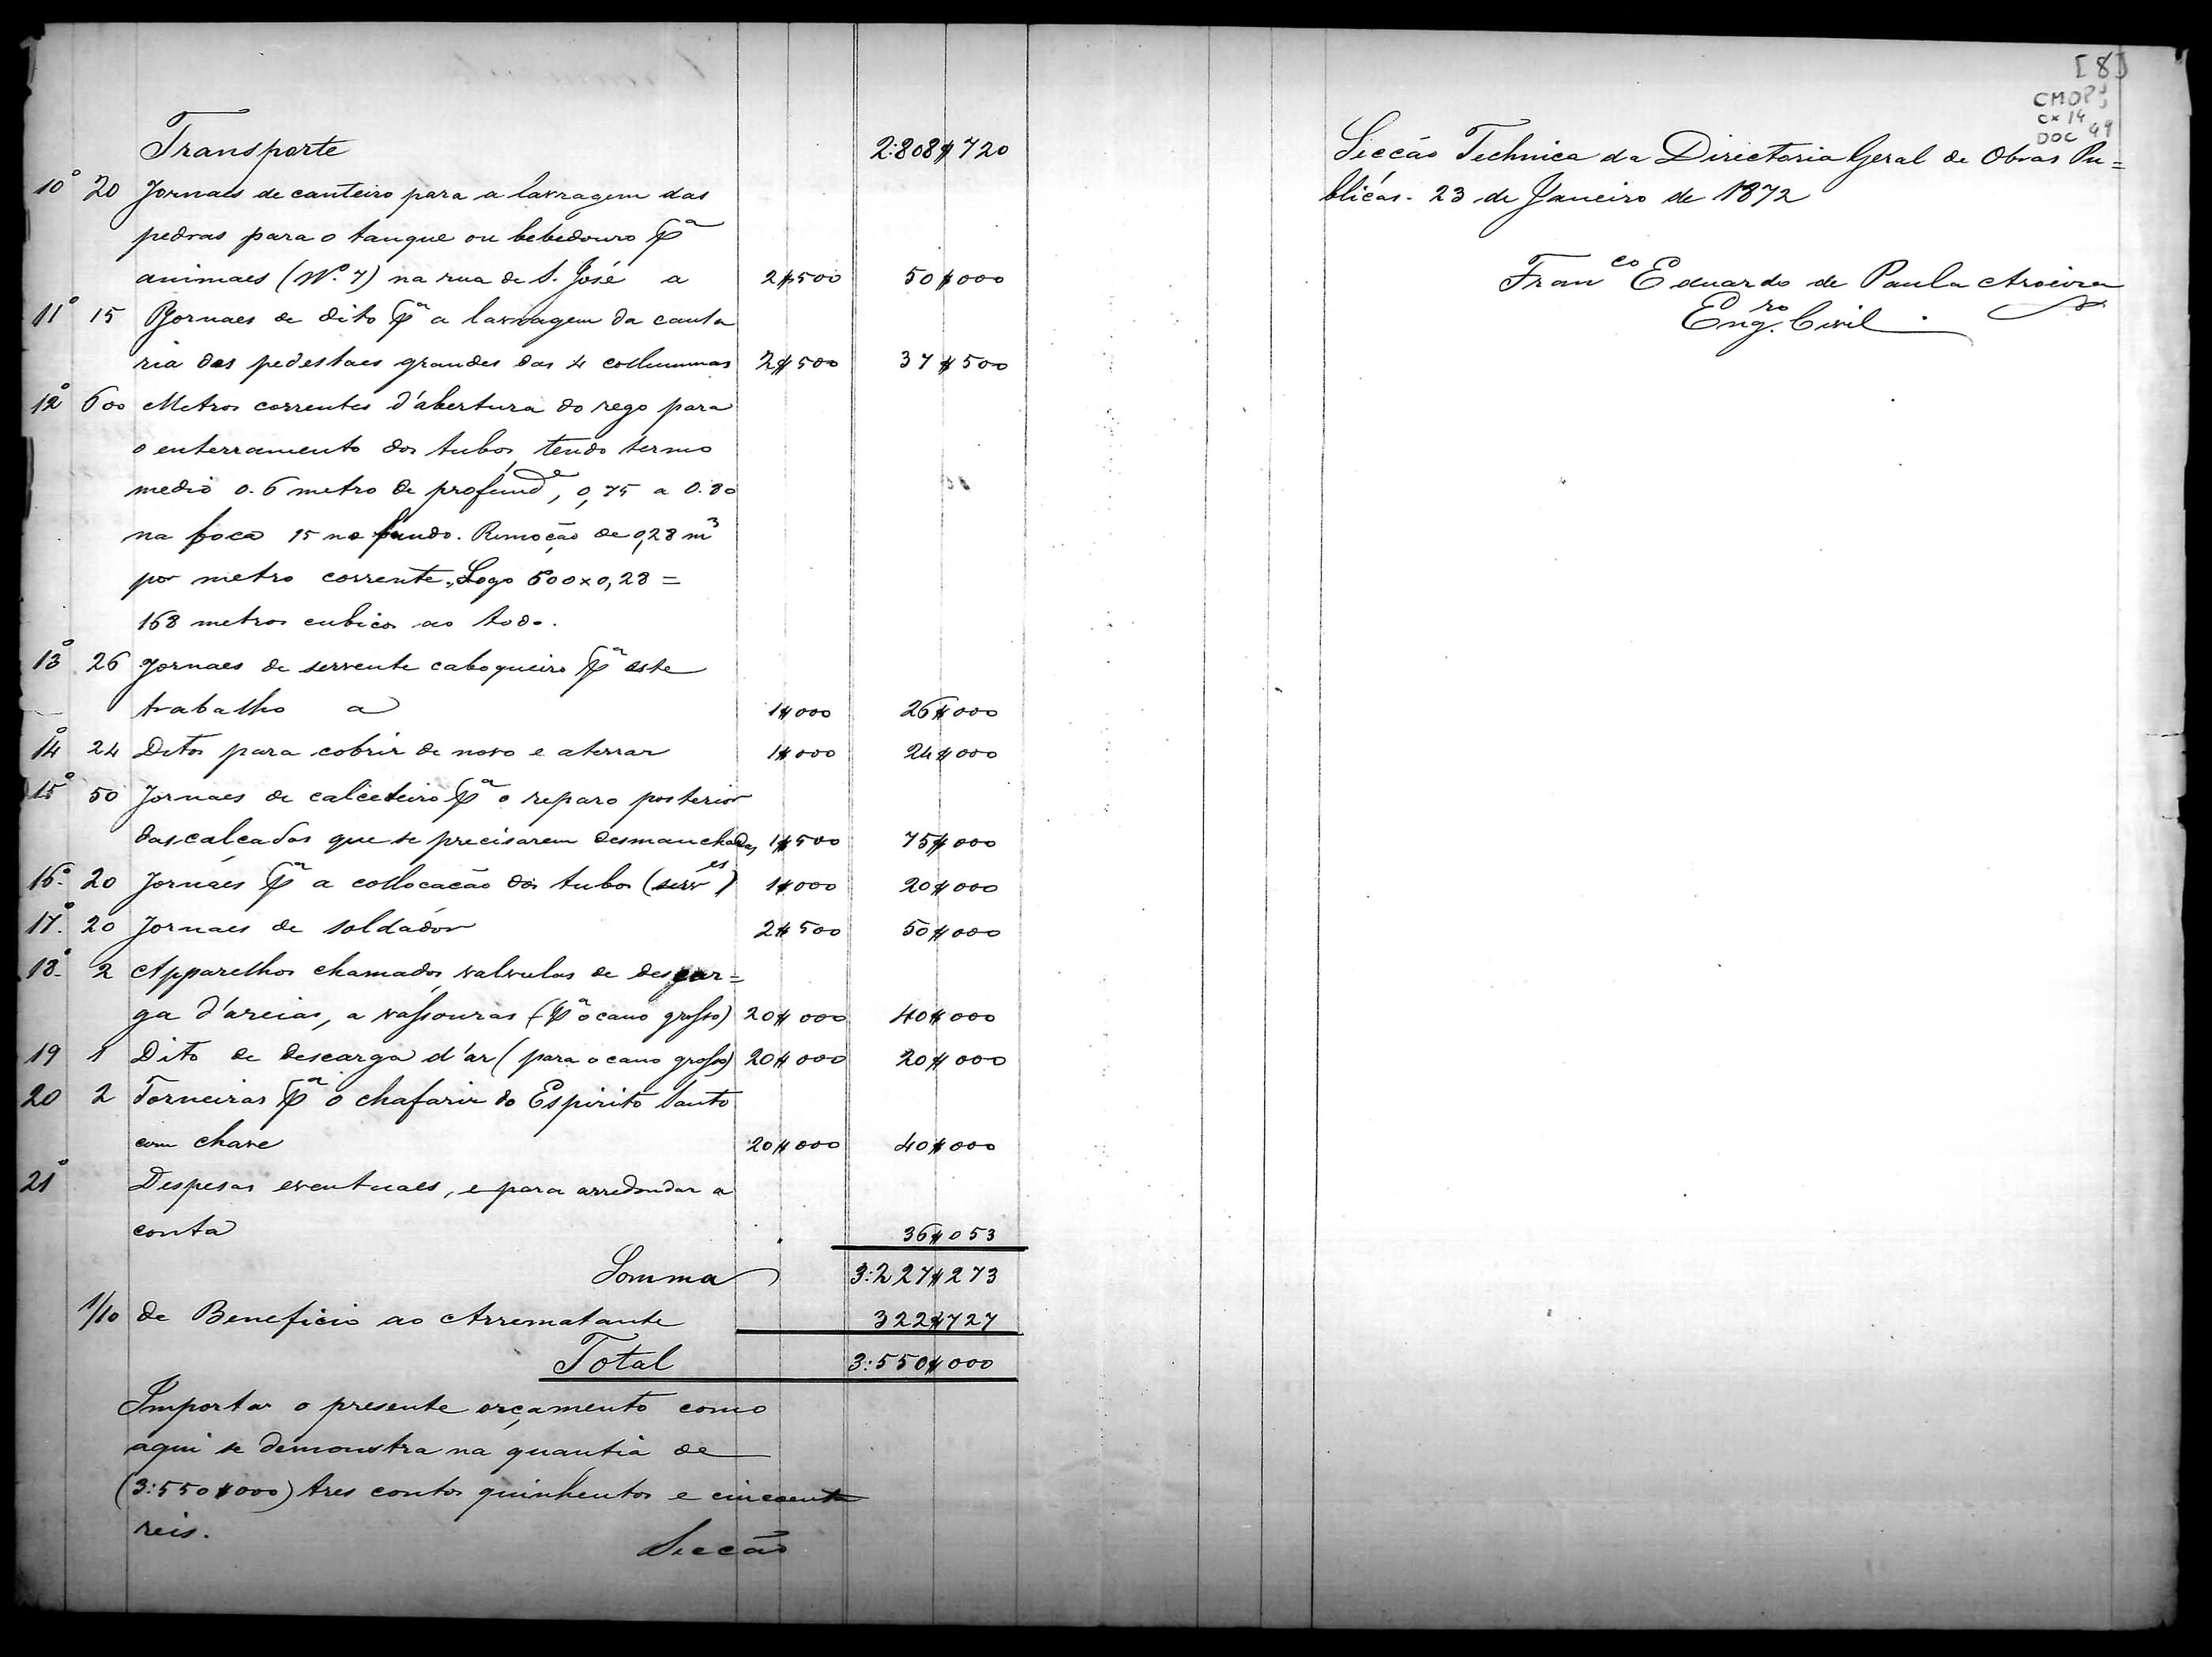 Transporte 2:808$720
10º 20 Jornaes de canteiro para a lavragem das
pedras para o tanque ou bebedouro pª
animaes (Nº. 7) na rua de S. José a 2$500 50$000
11º 15 Jornaes de dito pª a lavragem da canta
ria dos pedestaes grandes das 4 collumnas 2$500 37$500
12º 600 Metros correntes d'abertura do rego para
o enterramento dos tubos, tendo termo
medio 0.6 metro de profundᵉ, 0,75 a 0.80
na boca 15 no fundo. Remoção de 0,28 m³
por metro corrente, Logo 600 x 0,28 =
168 metros cubicos ao todo.
13º 26 Jornaes de servente caboqueiro pª este
trabalho a 1$000 26$000
14º 24 Ditos para cobrir de novo e aterrar 1$000 24$000
15º 50 Jornaes de calceteiro pª o reparo posterior
das calçadas que se precisarem desmanchadas 1$500 75$000
16º. 20 Jornaes pª a collocacão dos tubos (servᵉˢ) 1$000 20$000
17º. 20 Jornaes de soldador 2$500 50$000
18º 2 Apparelhos chamados, valvulas de descar=
ga d'areias, a vassouras (pª o cano grosso) 20$000 40$000
19 1 Dito de descarga d'ar (para o cano grosso) 20$000 20$000
20 2 Torneiras pª o chafariz do Espirito Santo
com chave 20$000 40$000
21º Despesas eventuaes, e para arredondar a
conta 36$053
Somma 3:227$273
1/10 de Beneficio ao Arrematante 322$727
Total 3:550$000
Importa o presente orçamento como
aqui se demonstra na quantia de
(3:550$000) tres contos quinhentos e cincoenta
reis.
Seccão
[8]
CMOP
cx 14
DOC 49
Secção Technica da Directoria Geral de Obras Pu=
blicas. 23 de Janeiro de 1872
Franᶜᵒ Eduardo de Paula Aroeira
Engʳᵒ. Civil